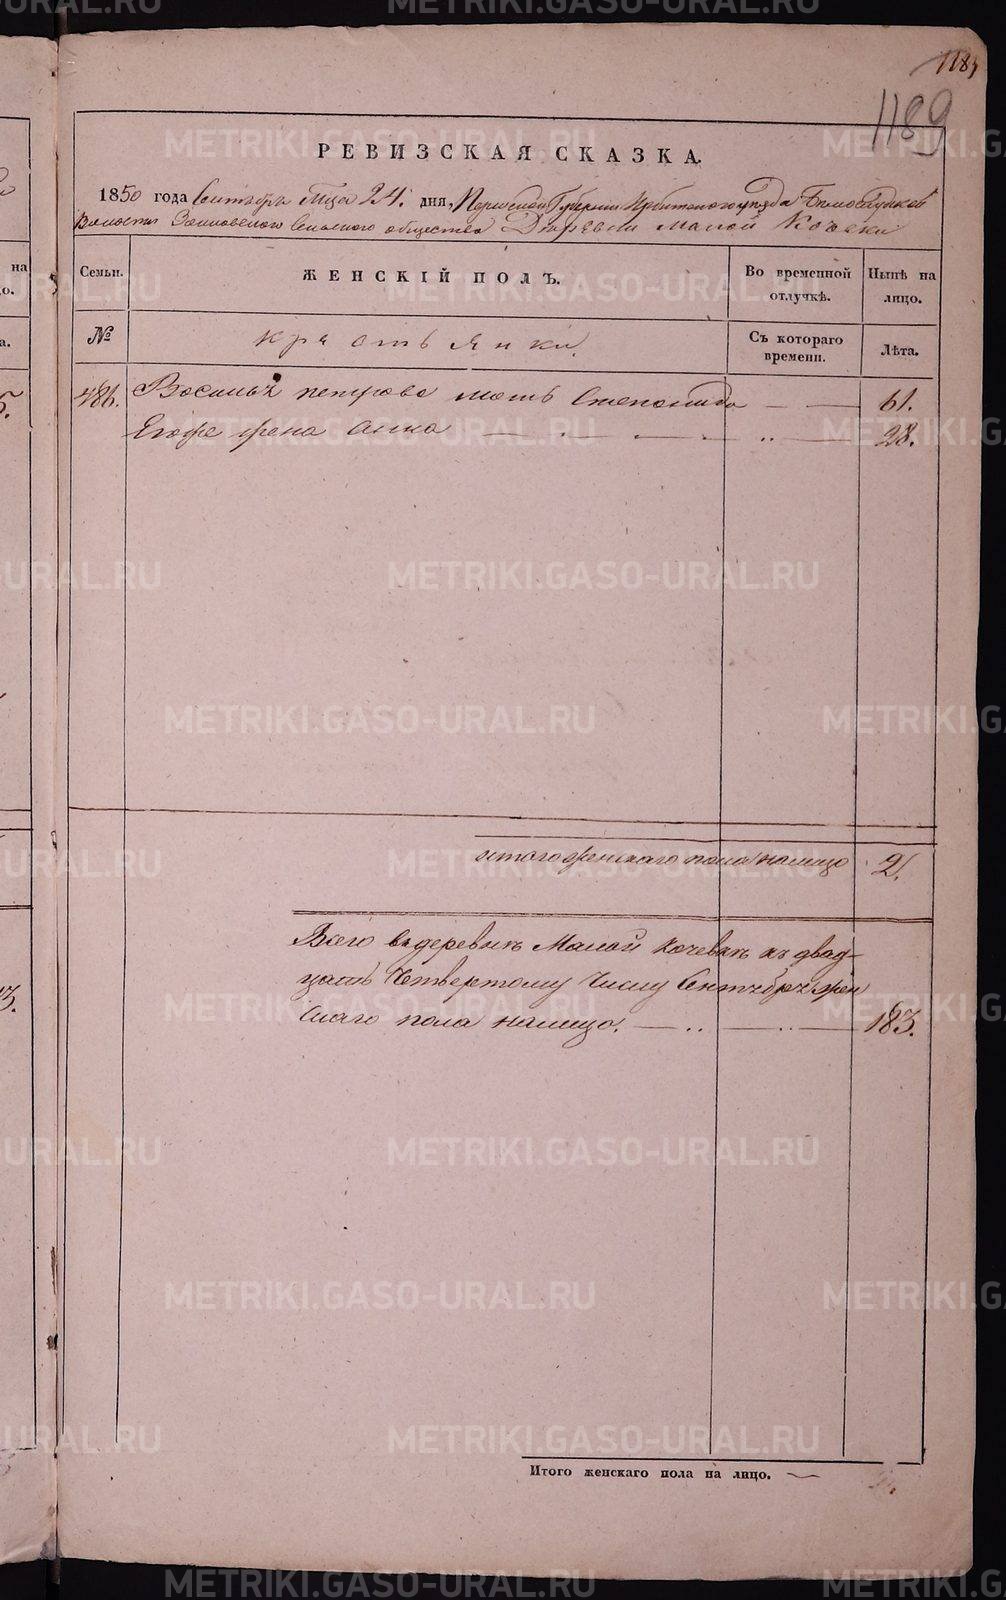 1189
1189
РЕВИЗСКАЯ СКАЗКА.
1850 года Сентября м-ца 24. дня, Пермской Губернии Ирбитского уезда Белослудской
Волости Зайковского сельского общества Деревни Малой Кочевки
Семьи. ЖЕНСКІЙ ПОЛЪ. Во временной отлучкѣ. Нынѣ на лицо.
№ Крестьянки. Съ котораго времени. Лѣта.
486. Василья петрова мать Степанида 61.
Его же жена Анна 28.
итого женскаго пола налицо 2.
Всего въ деревнѣ Малой Кочевкѣ къ двад-
цать Четвертому Числу Сентября жен
скаго пола налицо. 183.
Итого женскаго пола на лицо.
METRIKI.GASO-URAL.RU